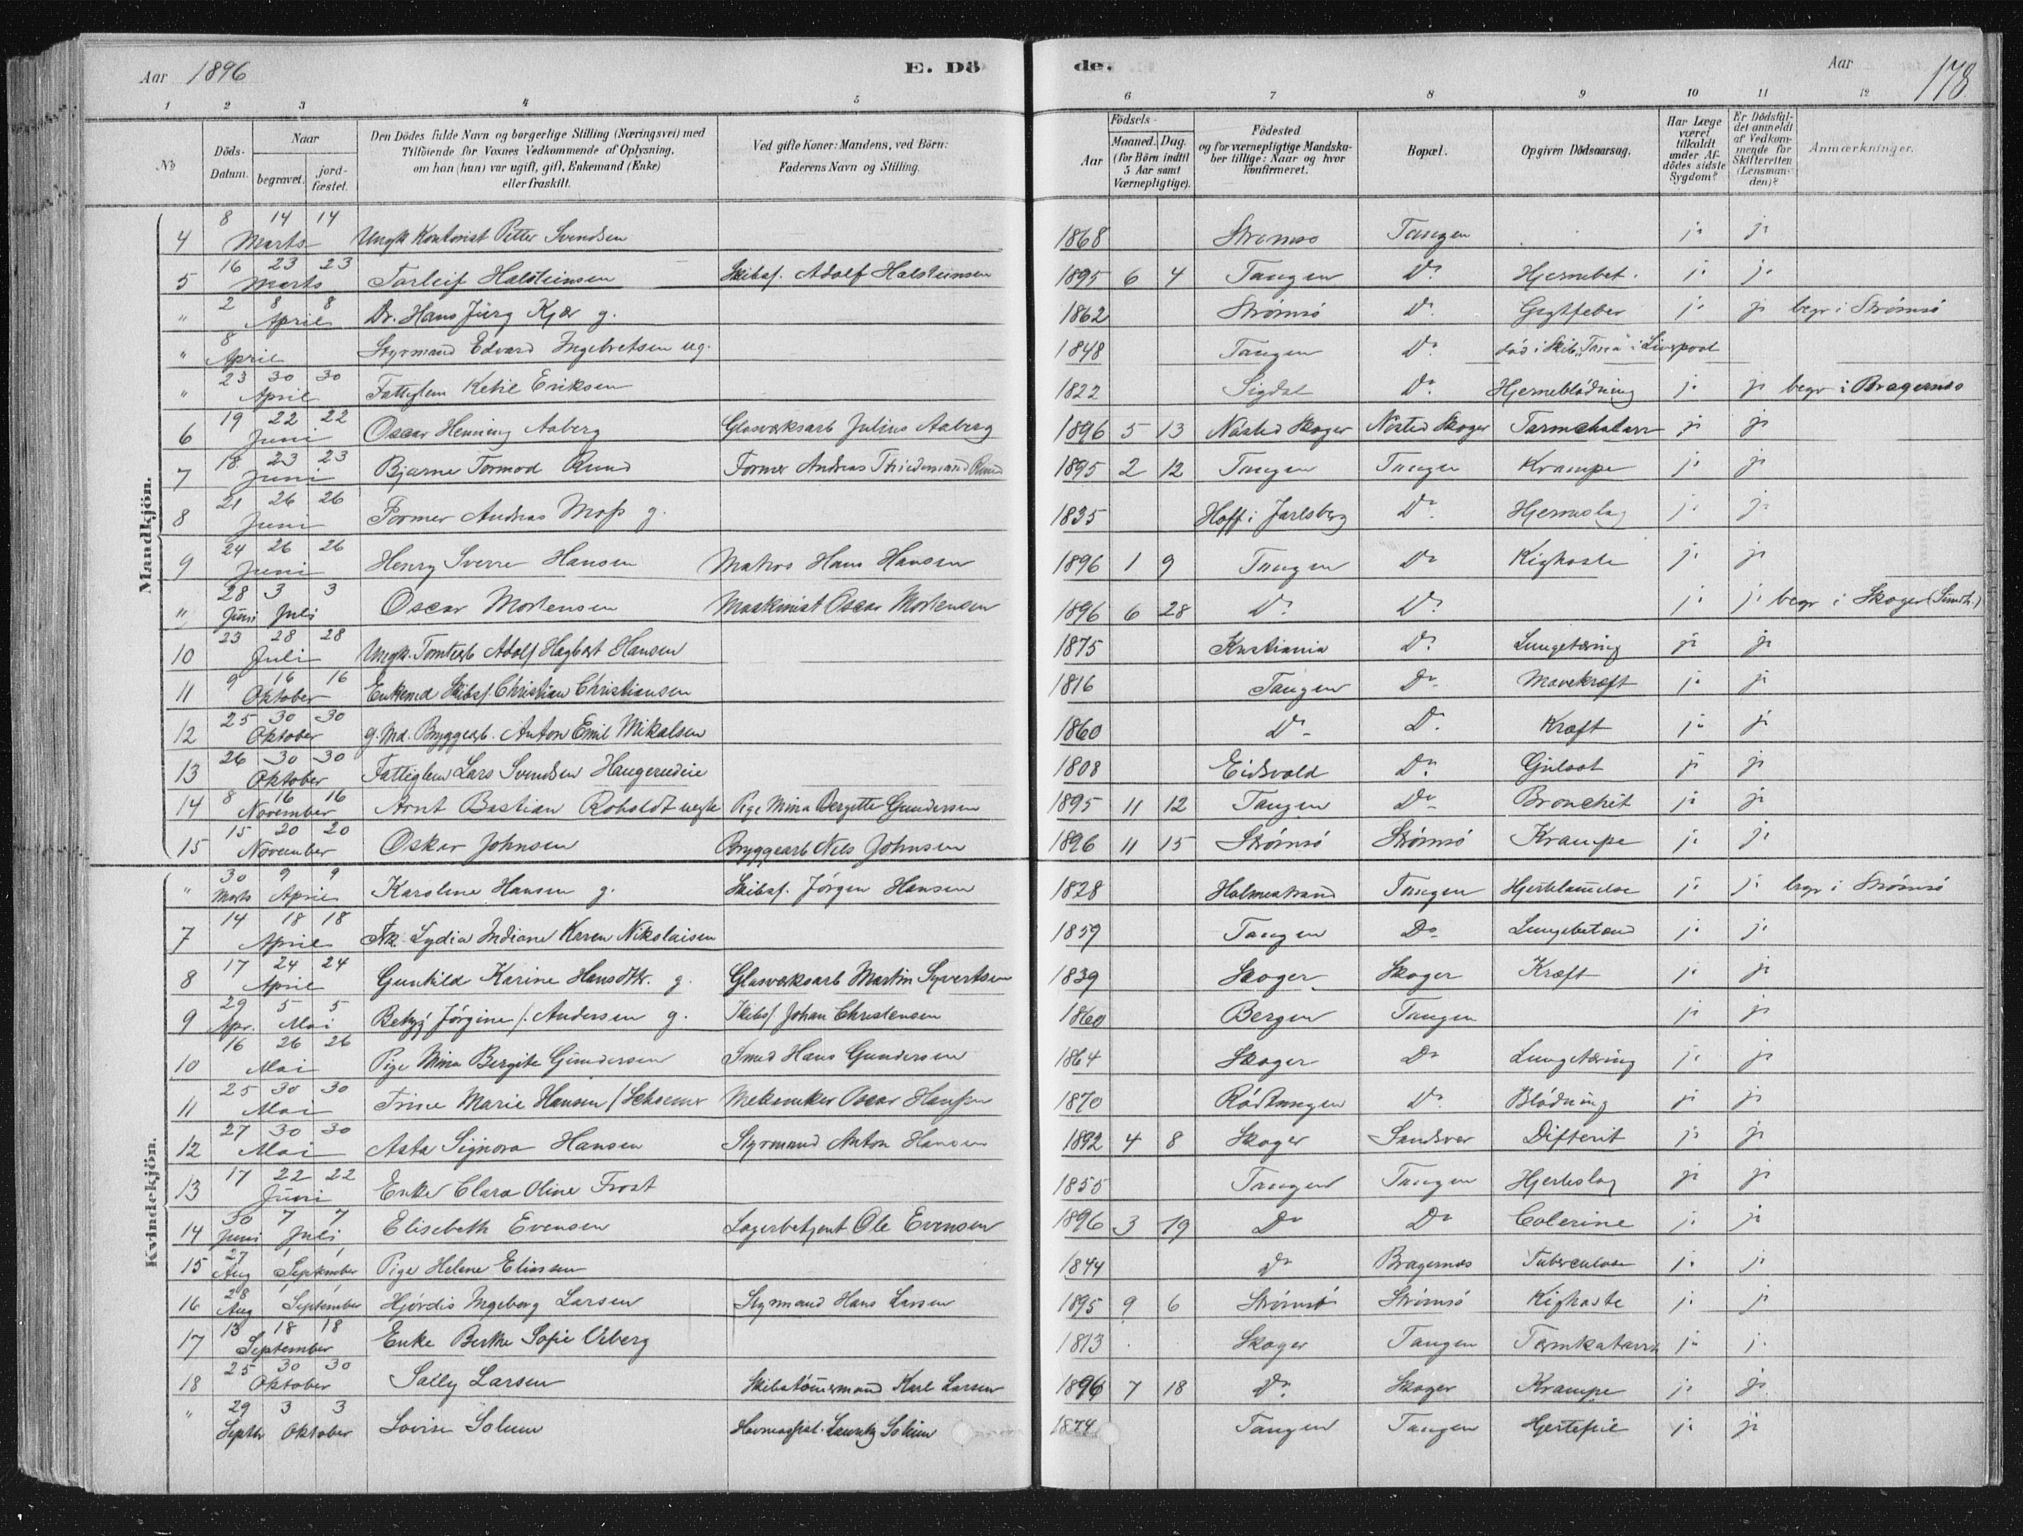 Aar 1896 E. Döde. Aar 178
1 2 3 4 5 6 7 8 9 10 11 12
No Döds-Datum. Naar begravet. jord-fæstet. Den Dödes fulde Navn og borgerlige Stilling (Næringsvei) med Tilföiende for Voxnes Vedkommende af Oplysning, om han (hun) var ugift, gift, Enkemand (Enke) eller fraskilt. Ved gifte Koner: Mandens, ved Börn: Faderens Navn og Stilling. Födsels- Aar Maaned. Dag. (for Börn indtil 5 Aar samt Værnepligtige). Födested og for værnepligtige Mandskaber tillige: Naar og hvor konfirmeret. Bopæl. Opgiven Dödsaarsag. Har Læge været tilkaldt under Afdödes sidste Sygdom? Er Dödsfaldet anmeldt af Vedkommende for Skifteretten (Lensmanden)? Anmærkninger.
Mandkjön.
4 8 14 14 Marts Ungk. Kontorist Petter Svendsen 1868 Strømsø Tangen ja ja
5 16 23 23 Marts Torleif Halsteinsen Skibsf. Adolf Halsteinsen 1895 6 4 Tangen Do Hjernebet. ja ja
" 2 8 8 April Dr. Hans Jürg Kjær g. 1862 Strømsö Do Gigtfeber ja ja begr i Strömsö
" 8 April Styrmand Edvard Ingebretsen ug. 1848 Tangen Do död i Skib i Liverpool
" 23 30 30 April Fattiglem Ketil Eriksen 1822 Sigdal Do Hjerneblödning ja ja begr i Bragernes
6 19 22 22 Juni Oscar Henning Aaberg Glasværksarb Julius Aaberg 1896 5 13 Nösted Skoger Nösted Skoger Tarmchatarr ja ja
7 18 23 23 Juni Bjarne Tormod Ruud Former Andreas Thidemand Ruud 1895 2 12 Tangen Tangen Krampe ja ja
8 21 26 26 Juni Former Andreas Moss g. 1835 Hoff i Jarlsberg Do Hjerneslag ja ja
9 24 26 26 Juni Henry Sverre Hansen Matros Hans Hansen 1896 1 9 Tangen Do Kighoste ja ja
" 28 3 3 Juni Juli Oscar Mortensen Maskinist Oscar Mortensen 1896 6 28 Do Do ja ja begr i Skoger
10 23 28 28 Juli Ungk. Tomtearb Adolf Hagbart Hansen 1875 Kristiania Do Lungetæring ja ja
11 9 16 16 Oktober Enkemd Skibsf. Christian Christiansen 1816 Tangen Do Mavekræft ja ja
12 25 30 30 Oktober g. Md. Bryggearb. Anton Emil Mikalsen 1860 Do Do Kræft ja ja
13 26 30 30 Oktober Fattiglem Lars Svendsen Haugerudeie 1808 Eidsvold Do Gulsot ja ja
14 8 16 16 November Arnt Bastian Roholdt uegte Pige Mina Bergitte Gundersen 1895 11 12 Tangen Do Bronchit ja ja
15 15 20 20 November Oskar Johnsen Bryggearb Nils Johnsen 1896 11 15 Strömsö Strömsö Krampe ja ja
Kvindekjön.
" 30 9 9 Marts April Karoline Hansen g. Skibsf. Jörgen Hansen 1828 Holmestrand Tangen Hjertelammelse ja ja begr i Strömsö
7 14 18 18 April Frk. Lydia Indiane Karen Nikolaisen 1859 Tangen Do Lungebetænd ja ja
8 17 24 24 April Gunhild Karine Hansdtr. g. Glasværksarb Martin Syvertsen 1839 Skoger Skoger Kræft ja ja
9 29 5 5 Apr. Mai Betzy Jörgine f. Andersen g. Skibsf Johan Christensen 1860 Bergen Tangen ja ja
10 16 26 26 Mai Pige Mina Bergite Gundersen Smed Hans Gundersen 1864 Skoger Do Lungetæring ja ja
11 25 30 30 Mai Trine Marie Hansen f Mekaniker Oscar Hansen 1870 Rödtangen Do Blödning ja ja
12 27 30 30 Mai Asta Signora Hansen Styrmand Anton Hansen 1892 4 8 Skoger Sandsvær Difterit ja ja
13 17 22 22 Juni Enke Clara Oline Frost 1855 Tangen Tangen Hjerteslag ja ja
14 30 7 7 Juni Juli Elisebeth Evensen Lagerbetjent Ole Evensen 1896 3 19 Do Do Colerine ja ja
15 27 1 1 Aug September Pige Helene Eliassen 1844 Do Bragernes Tuberculose ja ja
16 28 1 1 Aug September Hjördis Ingeborg Larsen Styrmand Hans Larsen 1895 9 6 Strömsö Strömsö Kighoste ja ja
17 13 18 18 September Enke Berthe Sofie Orberg 1813 Skoger Tangen Tarmkatarr ja ja
18 25 30 30 Oktober Sally Larsen Skibstömmermand Karl Larsen 1896 7 18 Do Skoger Krampe ja ja
" 29 3 3 Septbr Oktober Lovise Solum Havnelogst. Lauritz Solum 1874 Tangen Tangen Hjertefeil ja ja